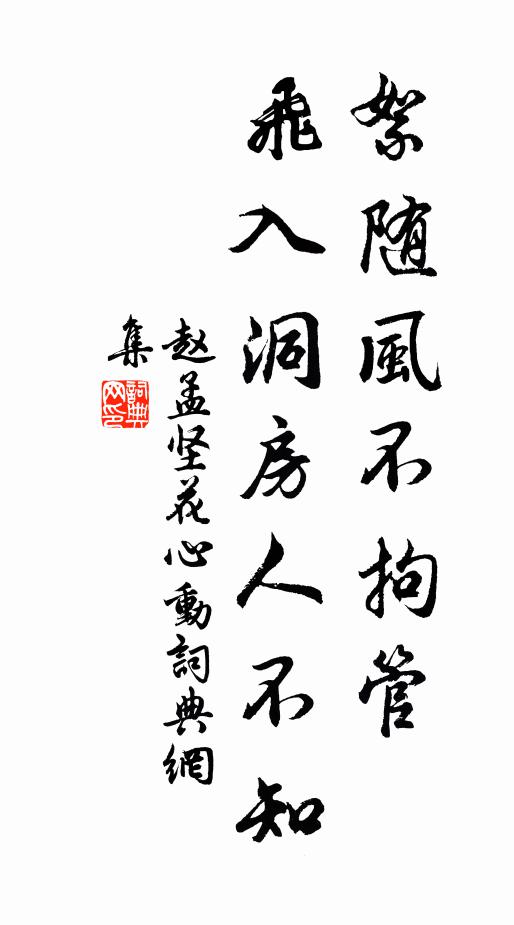 絮随風不拘管
飛入洞房人不知
赵孟坚花心動詞典網
集
詞典
网印